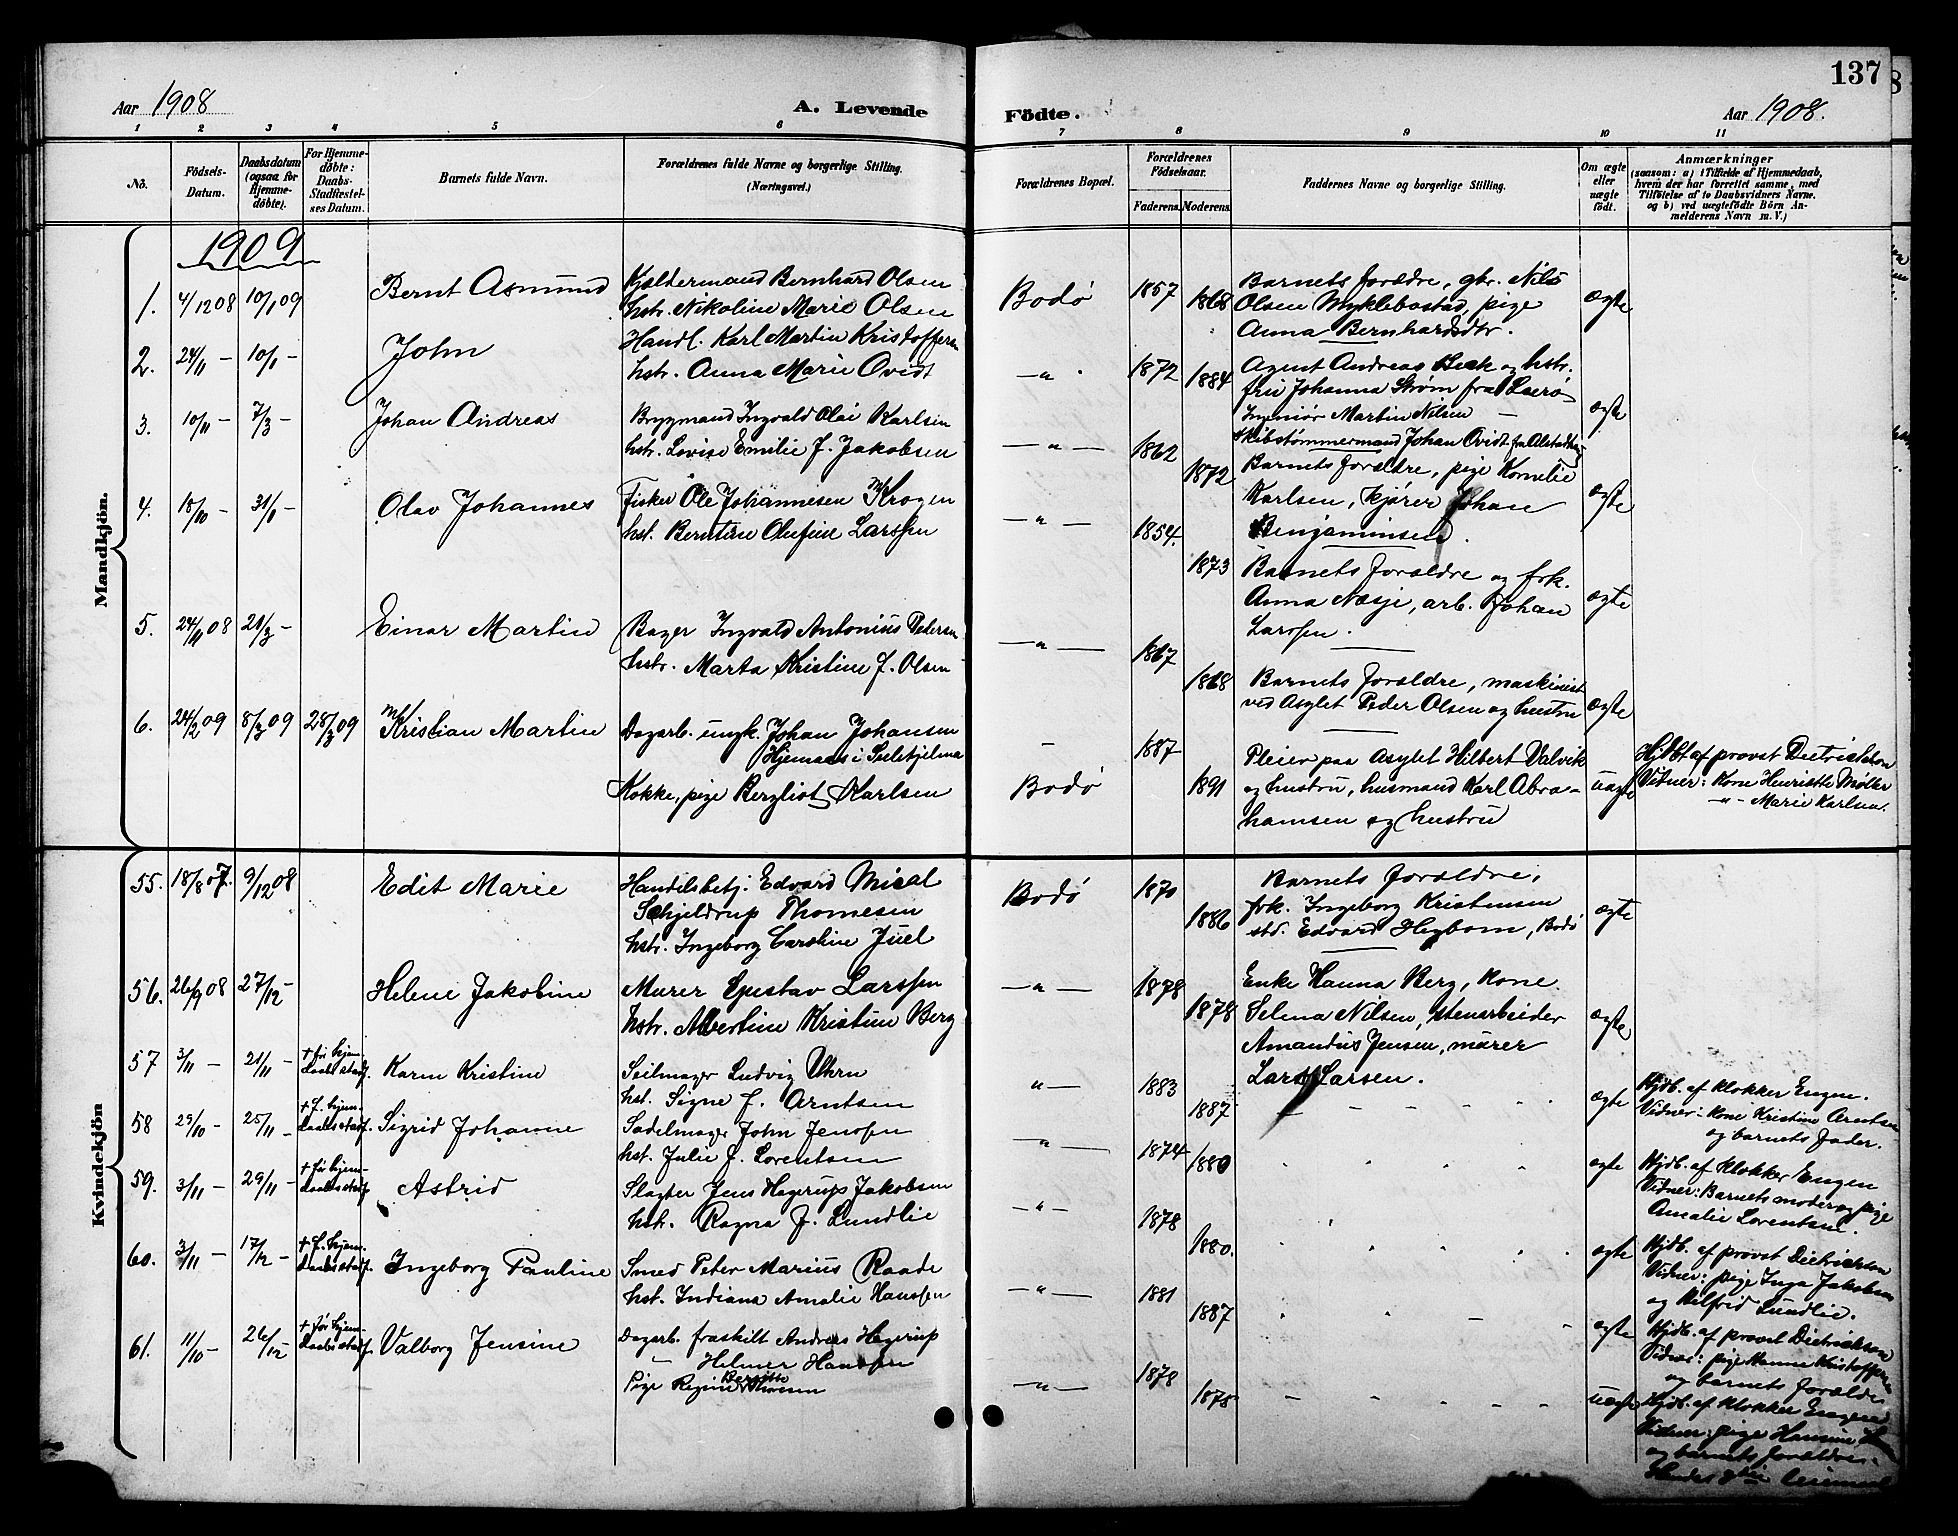 137
Aar 1908
A. Levende
Födte.
Aar 1908.
1 2 3 4 5 6 7 8 9 10 11
No.
Födsels-Datum.
Daabsdatum (ogsaa for Hjemme-döbte).
For Hjemme-döbte: Daabs-Stadfæstel-ses Datum.
Barnets fulde Navn.
Forældrenes fulde Navne og borgerlige Stilling.
(Næringsvei.)
Forældrenes Bopæl.
Forældrenes Födselsaar.
Faderens. Moderens.
Faddernes Navne og borgerlige Stilling.
Om ægte eller uægte födt.
Anmærkninger
(saasom: a) i Tilfælde af Hjemmedaab,
hvem der har forrettet samme, med
Tilföielse af to Daabsvidners Navne.
og b) ved uægtefödte Börn An-
melderens Navn m. V.)
Mandkjön.
1909
1. 4/12 08 10/1 09 Bernt Asmund
Kjældermand Bernhard Olsen
hstr. Nikoline Marie Olsen
Bodø 1857 1868
Barnets forældre, gbr. Nils
Olsen Myklebostad, pige
Anna Bernhardsdtr.
ægte
2. 24/11 – 10/1 – John
Handl. Karl Martin Kristoffersen
hstr. Anna Marie Ovidt
–"– 1872 1884
Agent Andreas Beck og hstr.
fru Johanna Strøm fra
Ingeniør Martin Nilsen –
Skibstømmermand Johan Ovidt fra Alstadhaug
ægte
3. 10/11 – 7/3 – Johan Andreas
Bryggmand Ingvald Olai Karlsen
hstr. Lovise Emilie f. Jakobsen
–"– 1862 1872
Barnets forældre, pige Kornelie
Karlsen, kjører Johan
Benjaminsen.
ægte
4. 18/10 – 31/1 – Olav Johannes
Fisker Ole Johannesen Krogen
hst. Berntine Olufine Larssen
–"– 1854. 1873
Barnets forældre og frk.
Anna Næsje, arb. Johan
Larssen.
ægte
5. 24/11 08 21/3 – Einar Martin
Bager Ingvald Antonius Petersen
hstr. Marta Kristine f. Olsen
–"– 1867 1868
Barnets forældre, maskinist
ved Asylet Peder Olsen og hustru
ægte
6. 24/2 09 8/3 09 28/3 09 Kristian Martin
Dagarb. ungk. Johan Johansen
Hjemaas i
Kokke, pige Bergliot Karlsen
Bodø 1887 1891
Pleier paa Asylet Hilbert Valvik
og hustru, husmand Karl Abra-
hamsen og hustru
uægte
Hjdbt af provst Dietrichson
Vidner: Kone Henriette Møller
–"– Marie Karlsen.
Kvindekjön
55. 18/8 07. 9/12 08 Edit Marie
Handelsbetj. Edvard Mical
Schjeldrup Thomesen
hstr. Ingeborg Caroline Juel
Bodø 1870 1886
Barnets forældre,
frk. Ingeborg Kristensen
std. Edvard Hegbom, Bodø
ægte
56. 26/9 08 27/12 – Helene Jakobine
Murer Gustav Larssen
hstr. Albertine Kristine Berg
–"– 1878 1878
Enke Hanna Berg, Kone
Selma Nilsen, stenarbeider
Amandus Jensen, murer
Lars Larsen.
ægte
57 3/11 – 21/11 – + før hjem. daabs stadf. Karen Kristine
Seilmager Ludvig
hst. Signe f. Arntsen
"– 1883 1887
ægte
Hjdb. af klokker Engen.
Vidner: Kone Kristine Arntsen
og barnets fader.
58 29/10 – 25/11 – + f. hjem. daabs stadf. Sigrid Johanne
Sadelmager John Jenssen
hst. Julie f. Lorentsen
–"– 1874 1880
ægte
Hjdb. af klokker Engen
Vidner: Barnets moder og pige
Amalie Lorentsen.
59. 3/11 – 29/11 – + før hjem. daabs stadf. Astrid
Slagter Jens Hagerup Jakobsen
hstr. Ragna f. Lundlie
–"– 1878 1880.
ægte
Hjdb. af provst Dietrichson
Vidner: pige Inga Jakobsen
og Hilfrid Lundlie.
60. 3/11 – 17/12 – + f. hjem. daabs stadf. Ingeborg Pauline
Smed Peter Marius Raade
hst. Indiana Amalie Hanssen
–"– 1881 1887
ægte
Hjdb. af provst Dietrichson
Vidner: pige Hanna Kristoffersen
og barnets forældre
61. 11/10 – 26/12 – + før hjem. daabs stadf. Valborg Jensine
Dagarb. fraskilt Andreas Hagerup
– Helmer Hanssen
Pige Regine Bergitte
–"– 1878 1878
uægte
Hjdb. af klokker Engen
Vidner: pige Hansine
og barnets forældre.